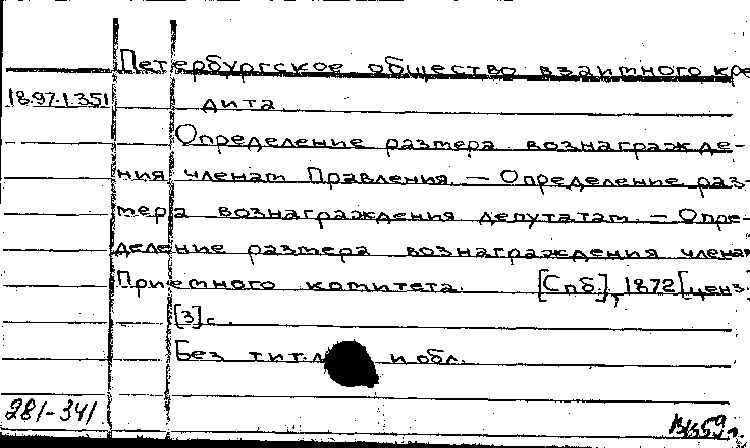 Петербургское общество взаимного кре
18.97.1.351 дита.
Определение размера вознагражде-
ния членам Правления. — Определение раз-
мера вознаграждения депутатам. — Опре-
деление размера вознаграждения членам
Приемного комитета. [Спб.], 1872 [ценз.
[3] с.
Без тит. л и обл.
281-341